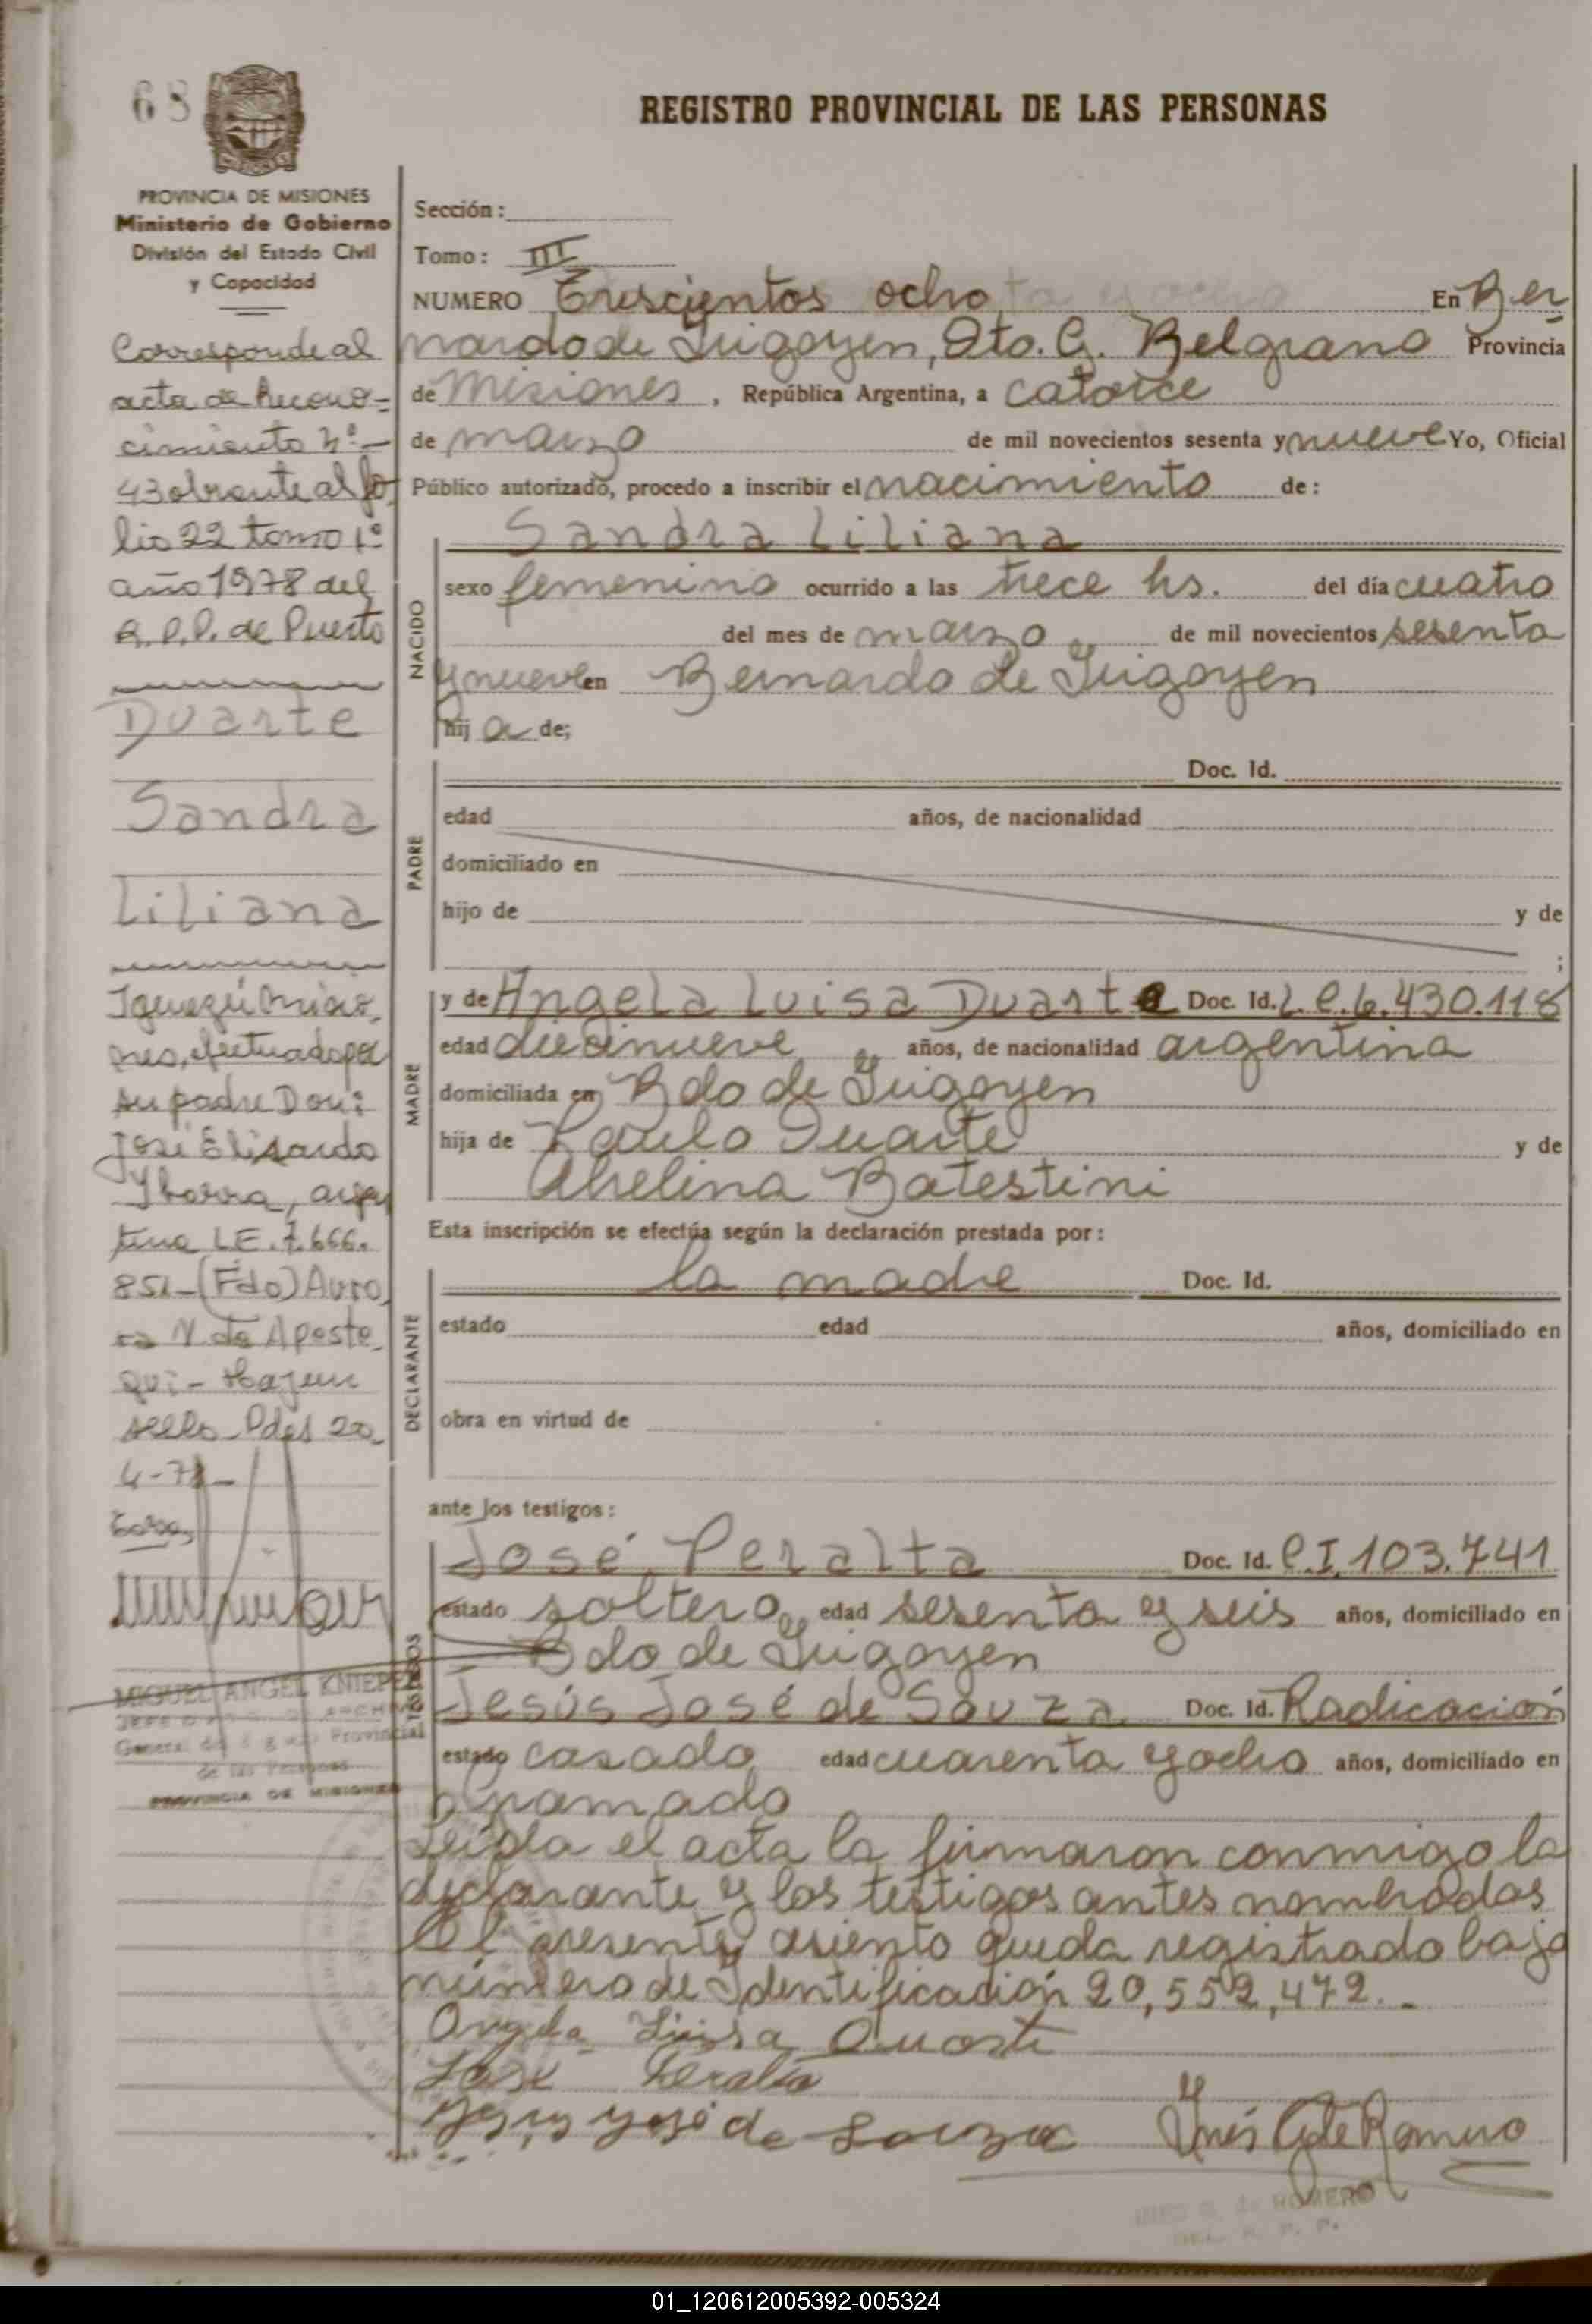 68
REGISTRO PROVINCIAL DE LAS PERSONAS
PROVINCIA DE MISIONES
Ministerio de Gobierno
División del Estado Civil
y Capacidad
Corresponde al
acta de Recono-
cimiento Nº-
43 obrante al fo
lio 22 tomo 1º
año 1978 del
R.P.P. de Puerto
Duarte
Sandra
Liliana
Iguazú Misio
nes, efectuado por
su padre Don:
José Elisardo
Ybarra, argen
tino L.E. 7.666.
851-(Fdo) Auro
ra N. de Apeste
gui - Hay un
sello - Pdas 20
4-78-
MIGUEL ANGEL KNIEPE
General Provincial
de las Personas
PROVINCIA DE MISIONES
Sección:
Tomo: III
NUMERO Trescientos ocho En Ber
nardo de Irigoyen, Dto. G. Belgrano Provincia
de Misiones, República Argentina, a catorce
de marzo de mil novecientos sesenta y nueve Yo, Oficial
Público autorizado, procedo a inscribir el nacimiento de:
NACIDO
Sandra Liliana
sexo femenino ocurrido a las trece hs. del día cuatro
del mes de marzo de mil novecientos sesenta
y nueve en Bernardo de Irigoyen
hij a de;
PADRE
Doc. Id.
edad años, de nacionalidad
domiciliado en
hijo de y de
;
MADRE
y de Angela Luisa Duarte Doc. Id. L.C. 6.430.118
edad diecinueve años, de nacionalidad argentina
domiciliada en Bdo de Irigoyen
hija de Paulo Duarte y de
Abelina Batestini
Esta inscripción se efectúa según la declaración prestada por:
DECLARANTE
la madre Doc. Id.
estado edad años, domiciliado en
obra en virtud de
ante los testigos:
TESTIGOS
José Peralta Doc. Id. C.I. 103.741
estado soltero edad sesenta y seis años, domiciliado en
Bdo de Irigoyen
Jesús José de Souza Doc. Id. Radicación
estado casado edad cuarenta y ocho años, domiciliado en
Leída el acta la firmaron conmigo la
declarante y los testigos antes nombrados
El presente asiento queda registrado bajo
número de Identificación 20,552,472.-
Angela Luisa Duarte
José Peralta
Jesus José de Souza Inés G de Romero
INES G. de ROMERO
01_120612005392-005324